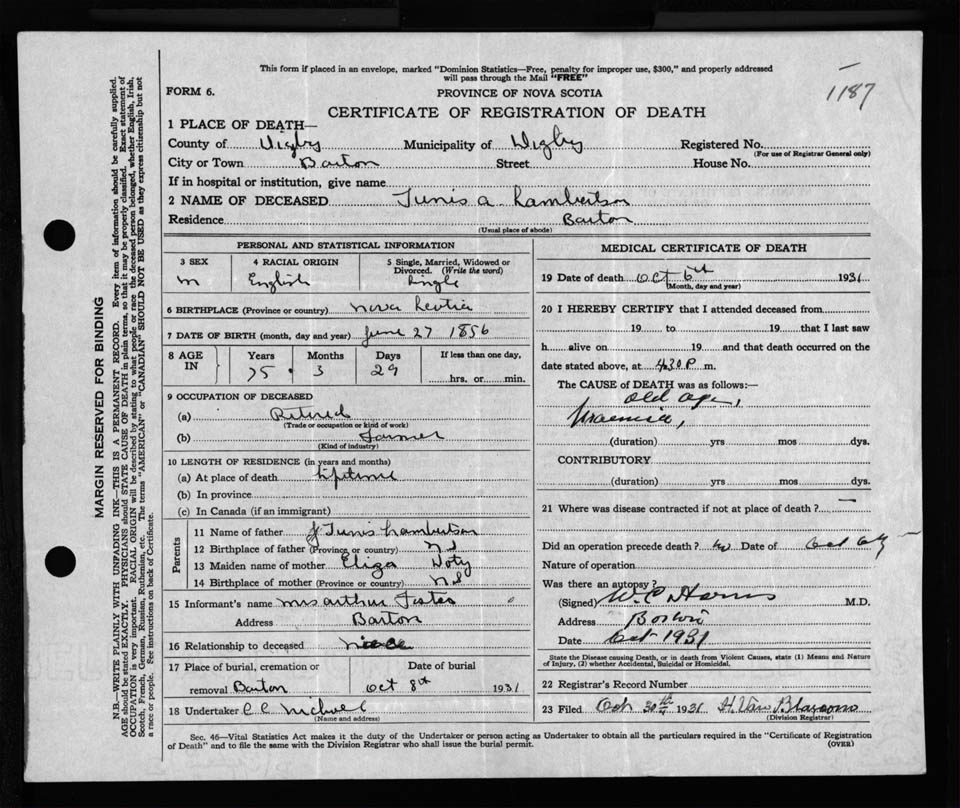 This form if placed in an envelope, marked "Dominion Statistics—Free, penalty for improper use, $300," and properly addressed
will pass through the Mail "FREE"
1187
FORM 6.
PROVINCE OF NOVA SCOTIA
CERTIFICATE OF REGISTRATION OF DEATH
1 PLACE OF DEATH—
County of Digby Municipality of Digby Registered No.
(For use of Registrar General only)
City or Town Barton Street House No.
If in hospital or institution, give name
2 NAME OF DECEASED Tunis A Lambertson
Residence Barton
(Usual place of abode)
MARGIN RESERVED FOR BINDING
N.B.—WRITE PLAINLY WITH UNFADING INK—THIS IS A PERMANENT RECORD. Every item of information should be carefully supplied.
AGE should be stated EXACTLY. PHYSICIANS should STATE CAUSE OF DEATH in plain terms, so that it may be properly classified. Exact statement of
OCCUPATION is very important. RACIAL ORIGIN will be described by stating to what people or race the deceased person belonged, whether English, Irish,
Scotch, French, German, Russian, Ruthenian, etc. The terms "AMERICAN" or "CANADIAN" SHOULD NOT BE USED as they express citizenship but not
a race or people. See instructions on back of Certificate.
PERSONAL AND STATISTICAL INFORMATION
3 SEX
M
4 RACIAL ORIGIN
English
5 Single, Married, Widowed or
Divorced. (Write the word)
Single
6 BIRTHPLACE (Province or country) Nova Scotia
7 DATE OF BIRTH (month, day and year) June 27 1856
8 AGE IN
Years Months Days If less than one day,
75 3 29 hrs. or min.
9 OCCUPATION OF DECEASED
(a) Retired
(Trade or occupation or kind of work)
(b) Farmer
(Kind of industry)
10 LENGTH OF RESIDENCE (in years and months)
(a) At place of death lifetime
(b) In province
(c) In Canada (if an immigrant)
Parents
11 Name of father J Tunis Lambertson
12 Birthplace of father (Province or country) NS
13 Maiden name of mother Eliza Doty
14 Birthplace of mother (Province or country) NS
15 Informant's name Mrs Arthur Foster
Address Barton
16 Relationship to deceased niece
17 Place of burial, cremation or Date of burial
removal Barton Oct 8th 1931
18 Undertaker
(Name and address)
MEDICAL CERTIFICATE OF DEATH
19 Date of death Oct 6th 1931
(Month, day and year)
20 I HEREBY CERTIFY that I attended deceased from
19 to 19 that I last saw
h alive on 19 and that death occurred on the
date stated above, at 4.30 P m.
The CAUSE of DEATH was as follows:—
Old age,
Uraemia,
(duration) yrs mos dys.
CONTRIBUTORY
(duration) yrs mos dys.
21 Where was disease contracted if not at place of death?
Did an operation precede death? no Date of
Nature of operation
Was there an autopsy?
(Signed) M.D.
Address
Date Oct 1931
State the Disease causing Death, or in death from Violent Causes, state (1) Means and Nature
of Injury, (2) whether Accidental, Suicidal or Homicidal.
22 Registrar's Record Number
23 Filed Oct 30th 1931 H. Van Blarcom
(Division Registrar)
Sec. 46—Vital Statistics Act makes it the duty of the Undertaker or person acting as Undertaker to obtain all the particulars required in the "Certificate of Registration
of Death" and to file the same with the Division Registrar who shall issue the burial permit. (OVER)